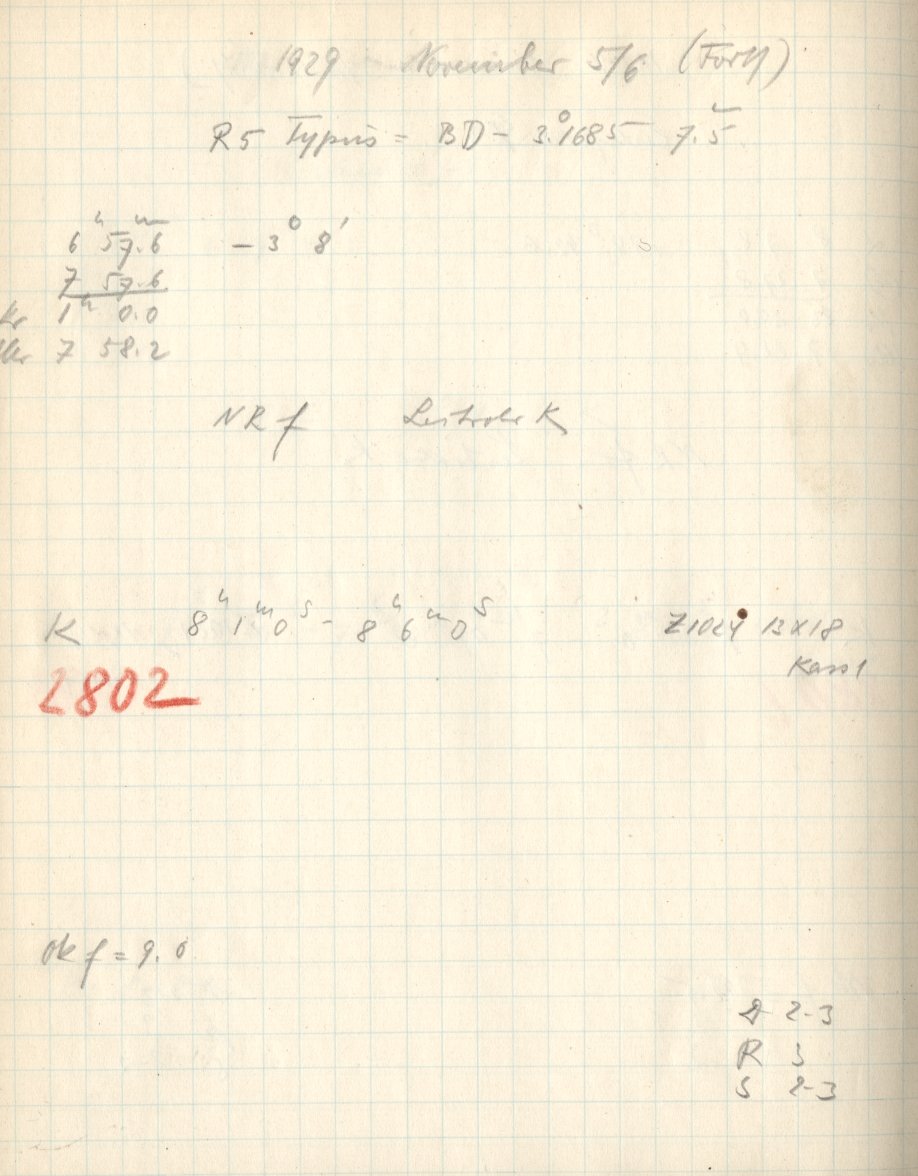 1929 November 5/6 (Forts)
R5 Typus = BD - 3.°1685 7.5
6ʰ 57.ᵐ6 - 3° 8'
7 57.6
1ʰ 0.0
7 58.2
NRf Leitrohr K
K 8ʰ 1ᵐ 0ˢ - 8ʰ 6ᵐ 0ˢ Z1024 13x18
Kass 1
2802
Ok f = 9.0
2-3
R 3
S 2-3